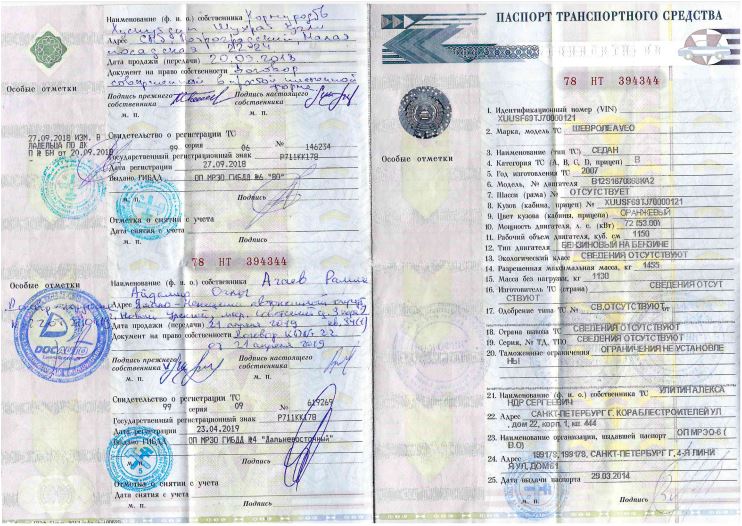 Наименование (ф. и. о.) собственника
Адрес
Дата продажи (передачи) 20.09.2018
Документ на право собственности Договор
совершенный в простой письменной
форме
Особые отметки
Подпись прежнего собственника
Подпись настоящего собственника
М. П.
М. П.
27.09.2018 ИЗМ. В
ЛАДЕЛЬЦА ПО ДК
П № БН от 20.09.2018
Свидетельство о регистрации ТС
99 серия 06 № 146234
Государственный регистрационный знак Р711КК178
Дата регистрации 27.09.2018
Выдано ГИБДД ОП МРЭО ГИБДД №6 "ВО"
М. П.
Подпись
Отметка о снятии с учета
Дата снятия с учета
М. П.
Подпись
78 НТ 394344
Особые отметки
Наименование (ф. и. о.) собственника Агаев Рамин
Адрес
Дата продажи (передачи) 21 апреля 2019
Документ на право собственности Договор
от 21 апреля 2019
Подпись прежнего собственника
Подпись настоящего собственника
М. П.
М. П.
Свидетельство о регистрации ТС
99 серия 09 № 619269
Государственный регистрационный знак Р711КК178
Дата регистрации 23.04.2019
Выдано ГИБДД ОП МРЭО ГИБДД №4 "Дальневосточный"
М. П.
Подпись
Отметка о снятии с учета
Дата снятия с учета
М. П.
Подпись
ПАСПОРТ ТРАНСПОРТНОГО СРЕДСТВА
78 НТ 394344
Особые отметки
1. Идентификационный номер (VIN)
XUUSF69TJ70000121
2. Марка, модель ТС ШЕВРОЛЕ AVEO
3. Наименование (тип ТС) СЕДАН
4. Категория ТС (А, В, С, D, прицеп) В
5. Год изготовления ТС 2007
6. Модель, № двигателя B12S1670868KA2
7. Шасси (рама) № ОТСУТСТВУЕТ
8. Кузов (кабина, прицеп) № XUUSF69TJ70000121
9. Цвет кузова (кабины, прицепа) ОРАНЖЕВЫЙ
10. Мощность двигателя, л. с. (кВт) 72 (53.00)
11. Рабочий объем двигателя, куб. см 1150
12. Тип двигателя БЕНЗИНОВЫЙ НА БЕНЗИНЕ
13. Экологический класс СВЕДЕНИЯ ОТСУТСТВУЮТ
14. Разрешенная максимальная масса, кг 1455
15. Масса без нагрузки, кг 1130
16. Изготовитель ТС (страна) СВЕДЕНИЯ ОТСУТ
СТВУЮТ
17. Одобрение типа ТС № СВ.ОТСУТСТВУЮТ
от
18. Страна вывоза ТС СВЕДЕНИЯ ОТСУТСТВУЮТ
19. Серия, № ТД, ТПО СВЕДЕНИЯ ОТСУТСТВУЮТ
20. Таможенные ограничения ОГРАНИЧЕНИЯ НЕ УСТАНОВЛЕ
НЫ
21. Наименование (ф. и. о.) собственника ТС УЛИТИН АЛЕКСА
НДР СЕРГЕЕВИЧ
22. Адрес САНКТ-ПЕТЕРБУРГ Г, КОРАБЛЕСТРОИТЕЛЕЙ УЛ
, дом 22, корп. 1, кв. 444
23. Наименование организации, выдавшей паспорт ОП МРЭО-6 (
В.О)
24. Адрес 199178, 199178, САНКТ-ПЕТЕРБУРГ Г, 4-Я ЛИНИ
Я УЛ, ДОМ 61
25. Дата выдачи паспорта 29.03.2014
М. П.
Подпись